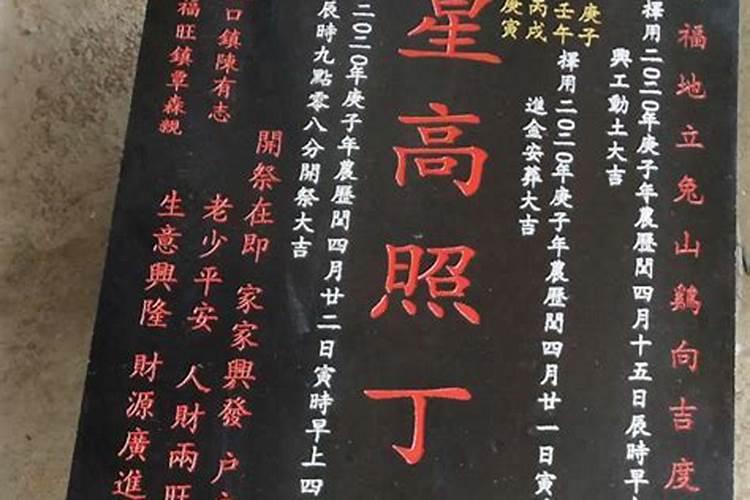 福地立兔山鷄向吉度
擇用二0二0年庚子年農歷閏四月十五日辰時早
興工動土大吉
庚子
壬午
丙戌
庚寅
擇用二0二0年庚子年農歷閏四月廿一日寅
進金安葬大吉
星高照丁
二0二0年庚子年農歷閏四月廿二日寅時早上四
辰時九點零八分開祭大吉
開祭在即 家家興發 戶
口鎮陳有志
老少平安 人財兩旺
福旺鎮覃森親
生意興隆 財源廣進